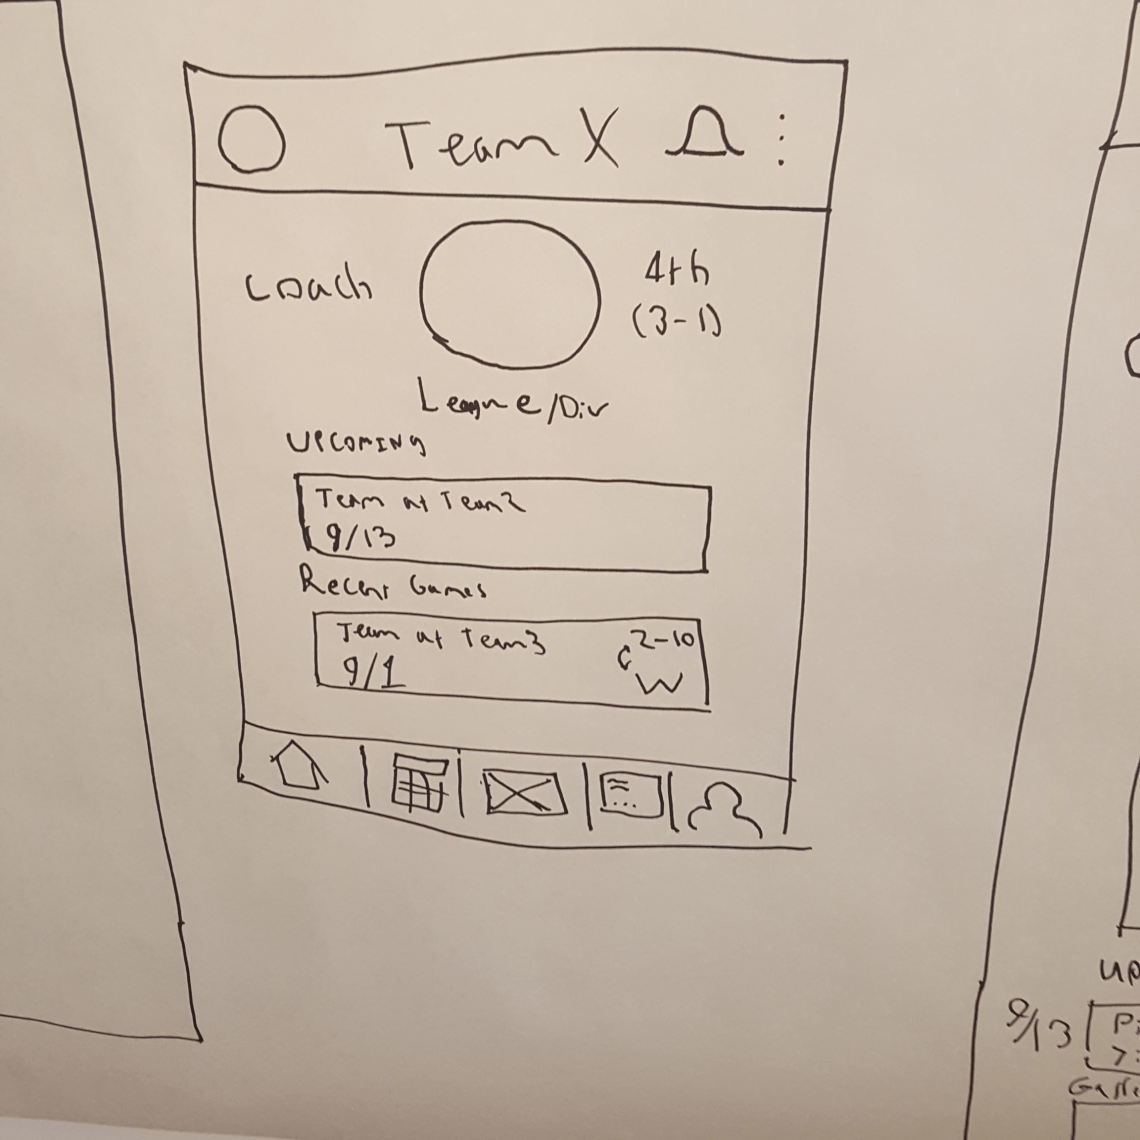 Team X
Coach
4th
(3-1)
League/Div
UPCOMING
Team at Team2
9/13
Recent Games
Team at Team3
9/1
2-10
W
UP
9/13